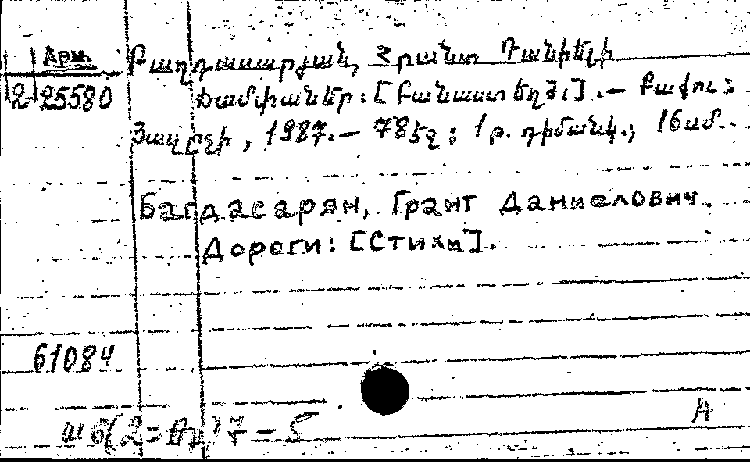 Арм.
2 25580
Բաղդասարյան, Հրանտ Դանիելի
Ճամփաներ: [Բանաստեղծ.] .—
1987.— 78 էջ: 1 թ. դիմանկ.; 16 սմ.
Багдасарян, Грант Даниелович
Дороги: [Стихи].
61084
А